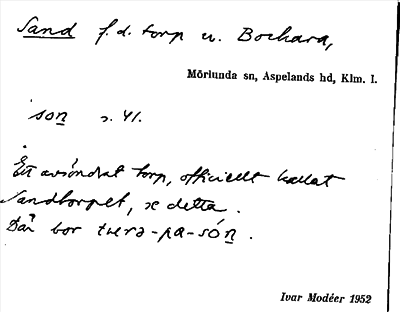 Sand f.d. torp u. Bockara,
Mörlunda sn, Aspelands hd, Klm. l.
son s. 41.
Ett avsöndrat torp, officiellt kallat
Sandtorpet, æ detta.
Där bor tuera-pa-són.
Ivar Modéer 1952